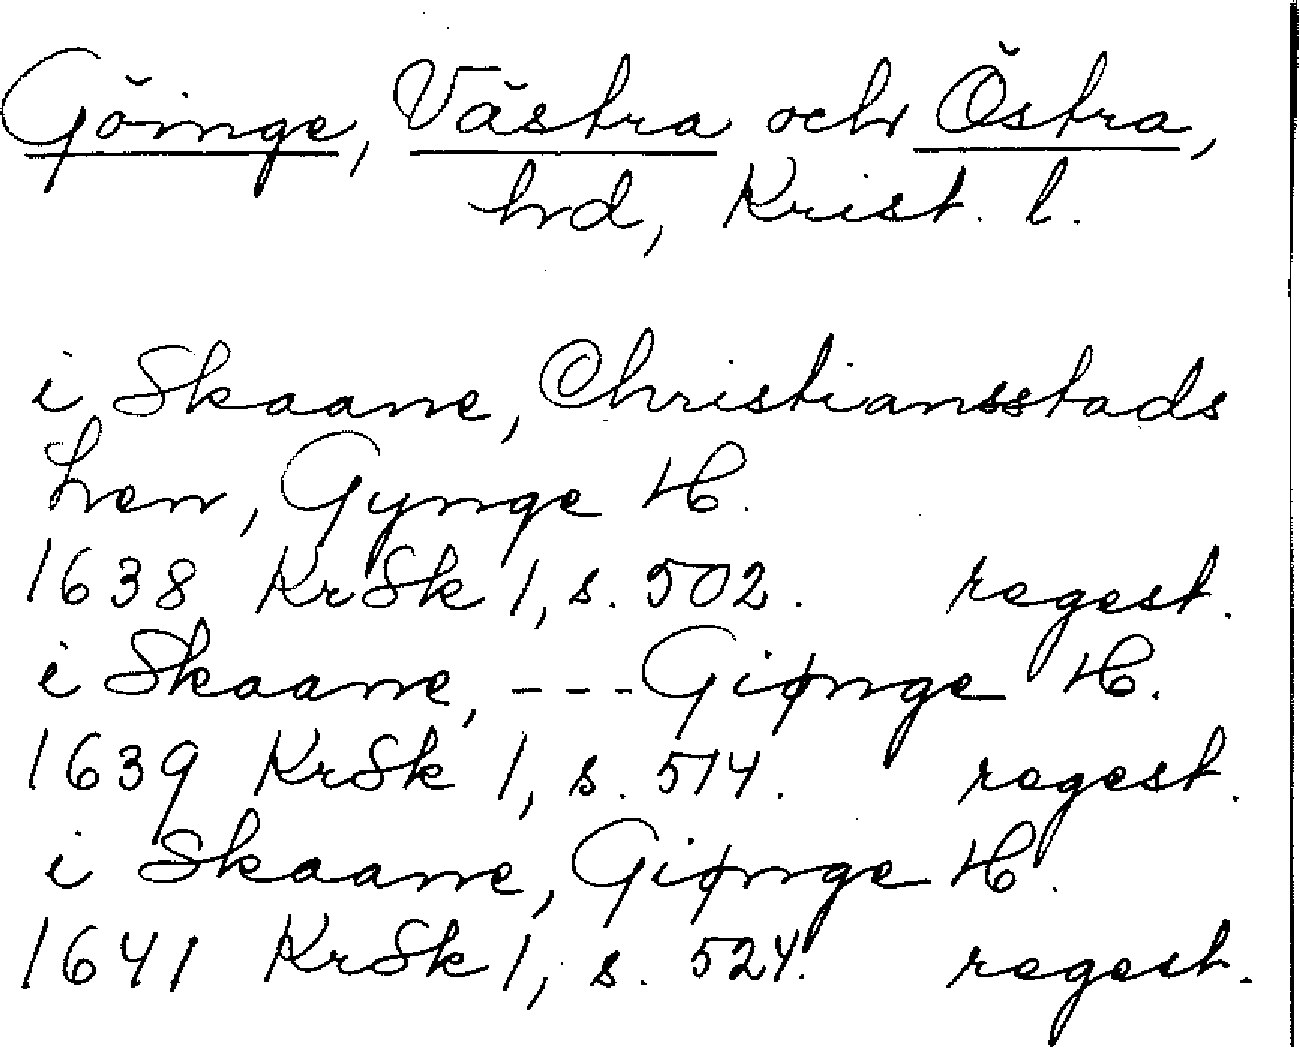 Göinge, Västra och Östra,
hd, Krist. l.
i Skaane, Christiansstads
Len, Gynge H.
1638 KrSk 1, s. 502. regest.
i Skaane, --- Giønge H.
1639 KrSk 1, s. 514. regest.
i Skaane, Giønge H.
1641 KrSk 1, s. 524. regest.